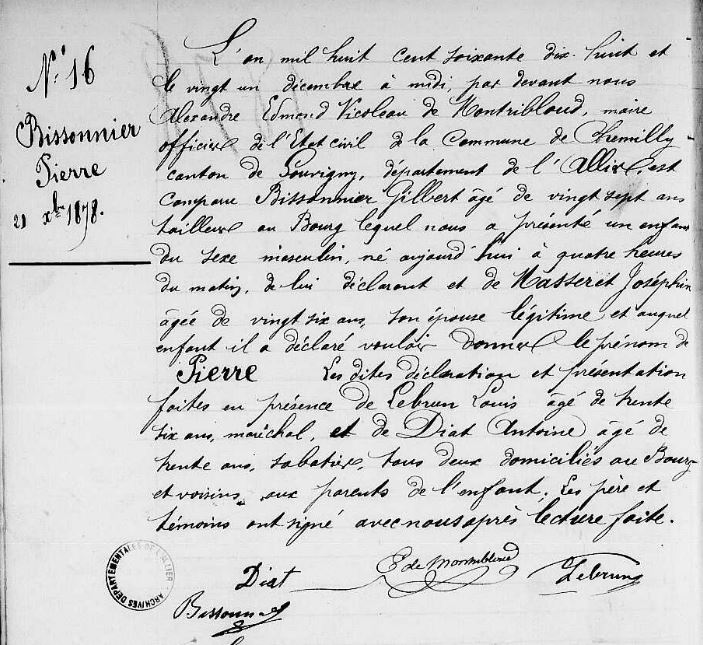 N° 16
Bissonnier
Pierre
21 Xbre 1878.
L'an mil huit cent soixante dix huit et
le vingt un décembre à midi, par devant nous
Alexandre Edmond Nicoleau de Montribloud, maire
officier de l'Etat civil de la Commune de Chemilly
canton de Souvigny, département de l'Allier, est
comparu Bissonnier Gilbert âgé de vingt sept ans
tailleur au Bourg lequel nous a présenté un enfant
du sexe masculin, né aujourd'hui à quatre heures
du matin, de lui déclarant et de Masseret Joséphine
âgée de vingt six ans, son épouse légitime et auquel
enfant il a déclaré vouloir donner le prénom de
Pierre Les dites déclaration et présentation
faites en présence de Lebrun Louis âgé de trente
six ans, maréchal, et de Diat Antoine âgé de
trente ans, sabotier, tous deux domiciliés au Bourg
et voisins aux parents de l'enfant. Les père et
témoins ont signé avec nous après lecture faite.
Diat E de Montribloud Lebrun
Bissonnier
ARCHIVES DÉPARTEMENTALES DE L'ALLIER